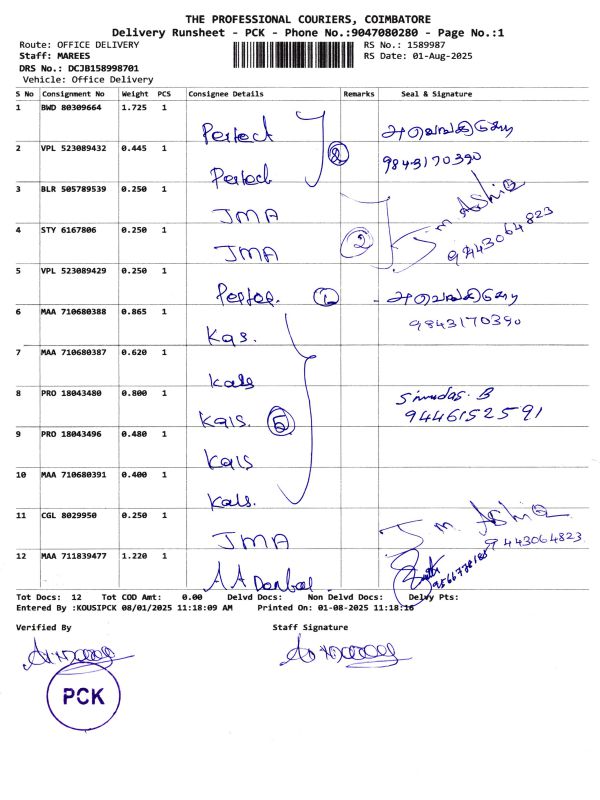 THE PROFESSIONAL COURIERS, COIMBATORE
Delivery Runsheet - PCK - Phone No.:9047080280 - Page No.:1
Route: OFFICE DELIVERY RS No.: 1589987
Staff: MAREES RS Date: 01-Aug-2025
DRS No.: DCJB158998701
Vehicle: Office Delivery
S No Consignment No Weight PCS Consignee Details Remarks Seal & Signature
1 BWD 80309664 1.725 1 Perfect
2 VPL 523089432 0.445 1 Perfect 2 9843170390
3 BLR 505789539 0.250 1 JMA J. M. Ashiq
4 STY 6167806 0.250 1 JMA 2 9443064823
5 VPL 523089429 0.250 1 1
6 MAA 710680388 0.865 1 Kas. 9843170390
7 MAA 710680387 0.620 1 Kals
8 PRO 18043480 0.800 1 Kals. 5 B 9446152591
9 PRO 18043496 0.480 1 Kals
10 MAA 710680391 0.400 1 Kals.
11 CGL 8029950 0.250 1 JMA J. M. Ashiq 9443064823
12 MAA 711839477 1.220 1 AA
Tot Docs: 12 Tot COD Amt: 0.00 Delvd Docs: Non Delvd Docs: Delvy Pts:
Entered By :KOUSIPCK 08/01/2025 11:18:09 AM Printed On: 01-08-2025 11:18:16
Verified By Staff Signature
PCK